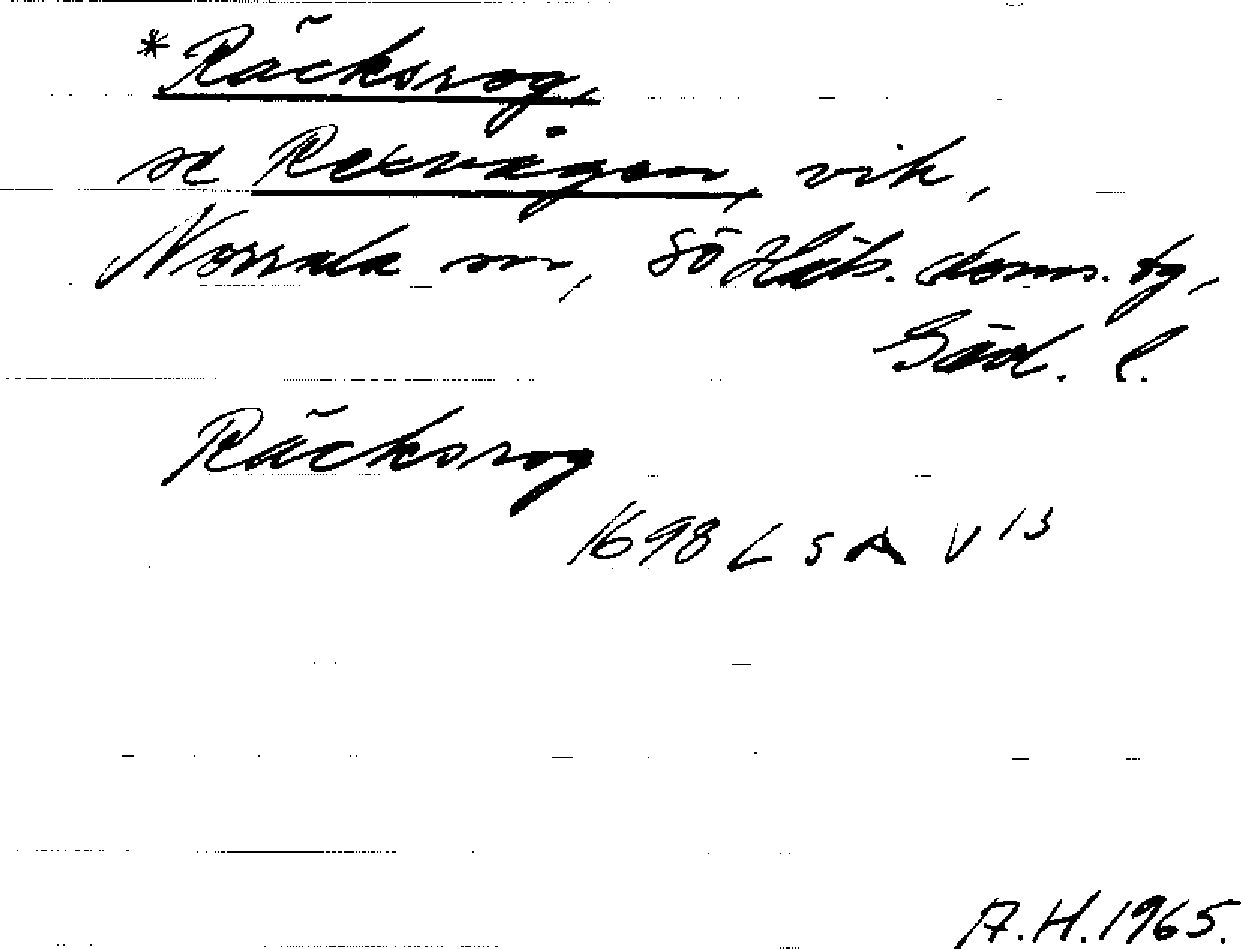 *Räcksvog,
se Rexvågen, vik,
Norrala sn, Sö Häls. doms. tg,
Gävl. l.
Räcksvog
1698 LSA V 13
A.H. 1965.